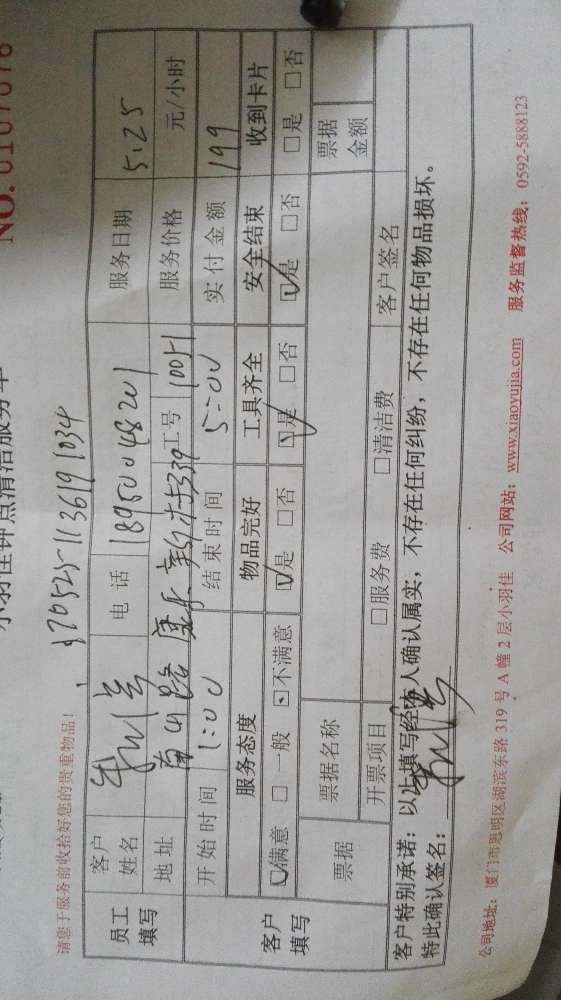 NO. 0107676
小羽佳钟点清洁服务单
请您于服务前收拾好您的贵重物品！
170525-113619 1034
员工填写
客户姓名
电话 18950048201
服务日期 5.25
地址
工号 10051
服务价格 元/小时
客户填写
开始时间 1:00
结束时间 5:00
实付金额 199
服务态度 物品完好 工具齐全 安全结束 收到卡片
☑满意 □一般 □不满意 ☑是 □否 ☑是 □否 ☑是 □否 □是 □否
票据
票据名称
票据金额
开票项目 □服务费 □清洁费 客户签名
客户特别承诺：以上填写经本人确认属实，不存在任何纠纷，不存在任何物品损坏。
特此确认签名：
公司地址：厦门市思明区湖滨东路 319 号 A 幢 2 层小羽佳 公司网站：www.xiaoyujia.com 服务监督热线：0592-5888123